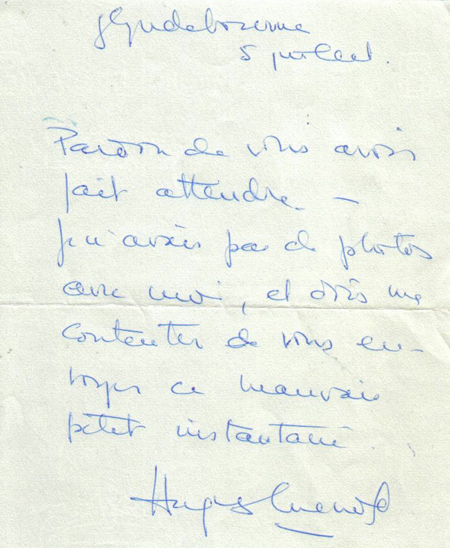 Glyndebourne
5 juillet.
Pardon de vous avoir
fait attendre. —
je n'avais pas de photos
avec moi, et dois me
contenter de vous en-
voyer ce mauvais
petit instantané.
Hugues Cuenod